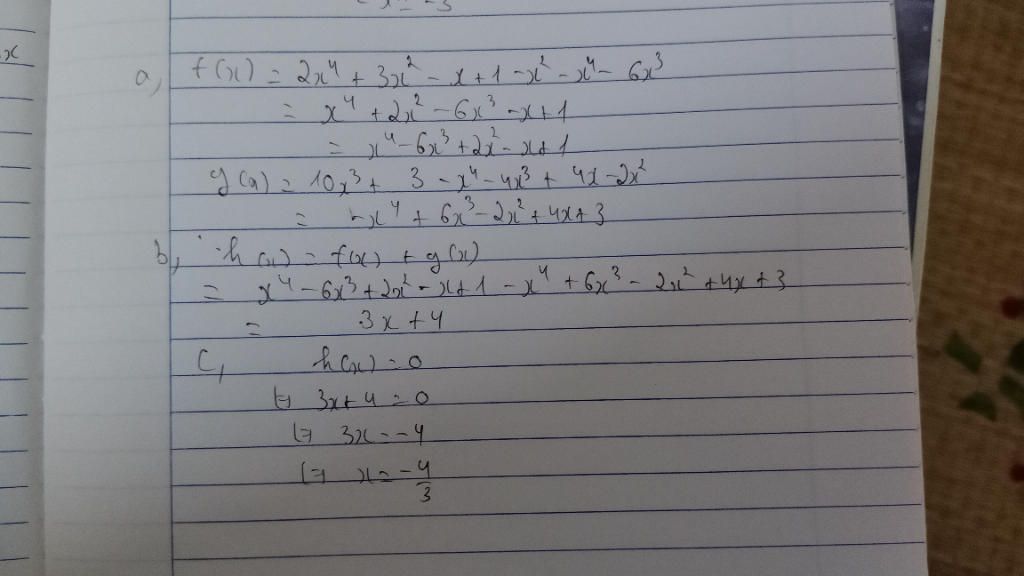 x
a, f(x) = 2x⁴ + 3x² - x + 1 - x² - x⁴ - 6x³
= x⁴ + 2x² - 6x³ - x + 1
= x⁴ - 6x³ + 2x² - x + 1
g(x) = 10x³ + 3 - x⁴ - 4x³ + 4x - 2x²
= -x⁴ + 6x³ - 2x² + 4x + 3
b, h(x) = f(x) + g(x)
= x⁴ - 6x³ + 2x² - x + 1 - x⁴ + 6x³ - 2x² + 4x + 3
= 3x + 4
C, h(x) = 0
⇔ 3x + 4 = 0
⇔ 3x = -4
⇔ x = -4/3